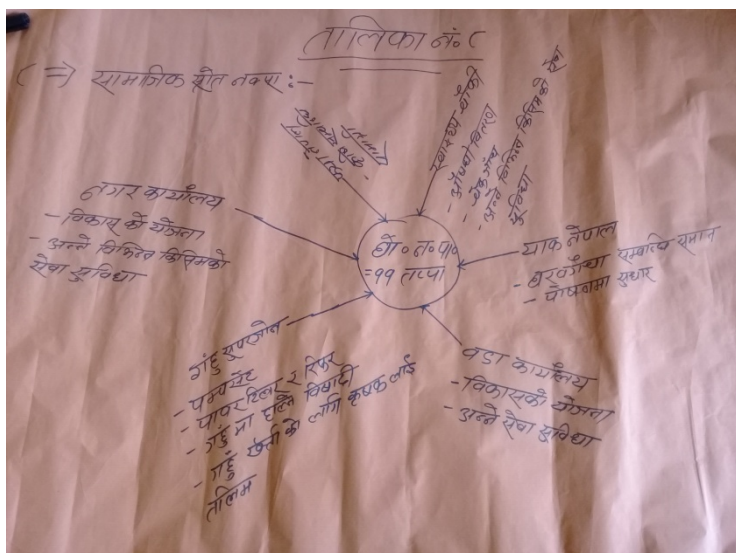 तालिका नं. ८
८ => सामाजिक स्रोत नक्सा :-
स्वास्थ्य चौकी
- औषधी वितरण
- चेक जाँच
- अन्ने विभिन्न किसिमको सेवा
सुविधा
नगर कार्यालय
- विकास को योजना
- अन्ने विभिन्न किसिमको
सेवा सुविधा
घो॰ न॰ पा॰
= ११ तप्पा
याक नेपाल
- पोषणमा सुधार
गहुँ सुपरजोन
- पम्पसेट
- पावर टिलर र रिपर
- गहुँ मा हाल्ने विषादी
- गहुँ खेती को लागि कृषक लाई
तालिम
वडा कार्यालय
- विकासको योजना
- अन्ने सेवा सुविधा